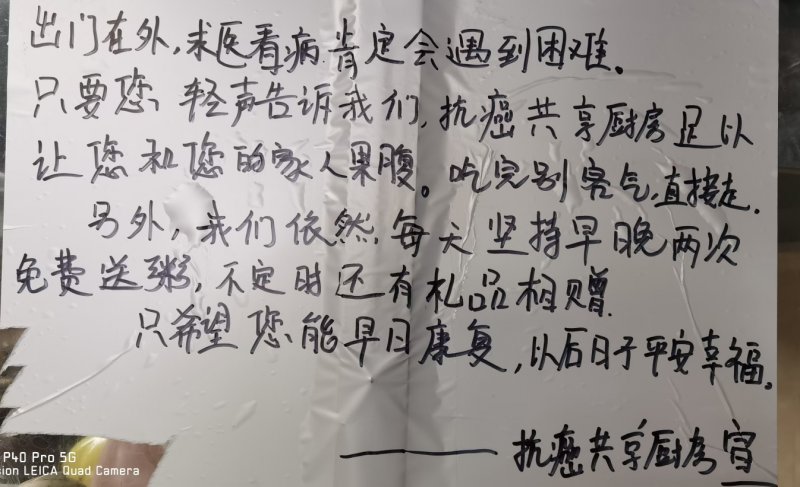 出门在外,求医看病肯定会遇到困难。
只要您,轻声告诉我们,抗癌共享厨房足以
让您和您的家人果腹。吃完别客气,直接走.
另外,我们依然,每天坚持早晚两次
免费送粥,不定时还有礼品相赠.
只希望您能早日康复,以后日子平安幸福.
——抗癌共享厨房宣
P40 Pro 5G
sion LEICA Quad Camera